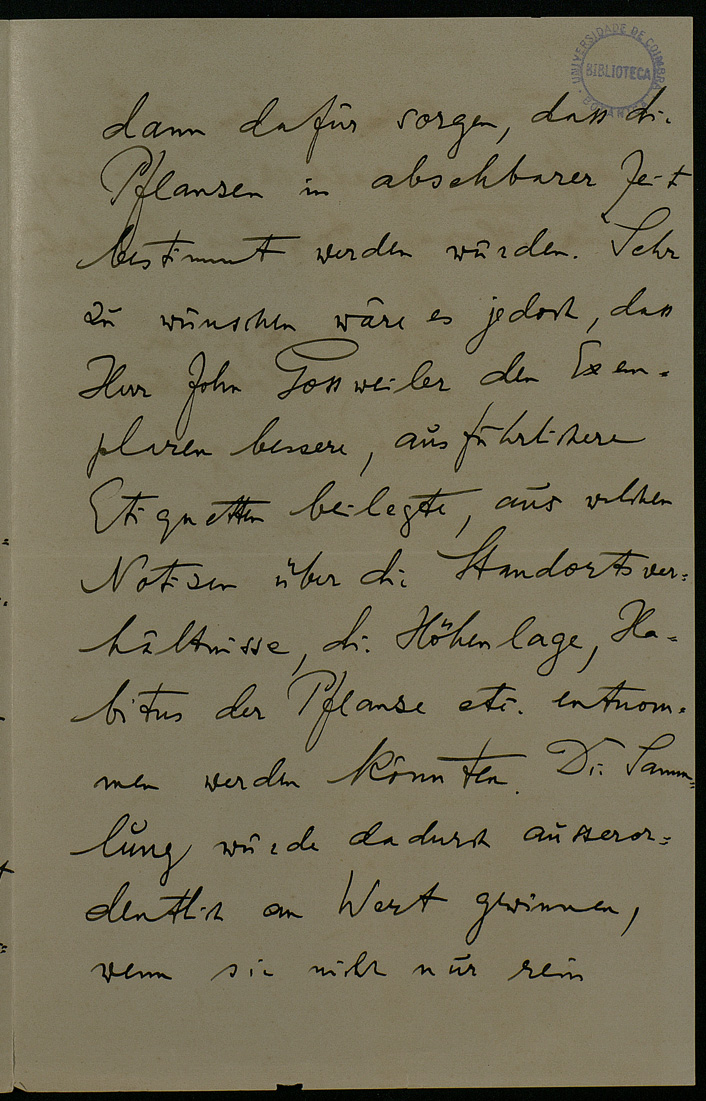 UNIVERSIDADE DE COIMBRA
BIBLIOTECA
BOTANICA
dann dafür sorgen, dass die
Pflanzen in absehbarer Zeit
bestimmt werden würden. Sehr
zu wünschen wäre es jedoch, dass
Herr John Gossweiler den Exem-
plaren bessere, ausführlichere
Etiquetten beilegte, aus welchen
Notizen über die Standortsver-
hältnisse, die Höhenlage, Ha-
bitus der Pflanze etc. entnom-
men werden könnten. Die Samm-
lung würde dadurch ausseror-
dentlich an Wert gewinnen,
wenn sie nicht nur rein